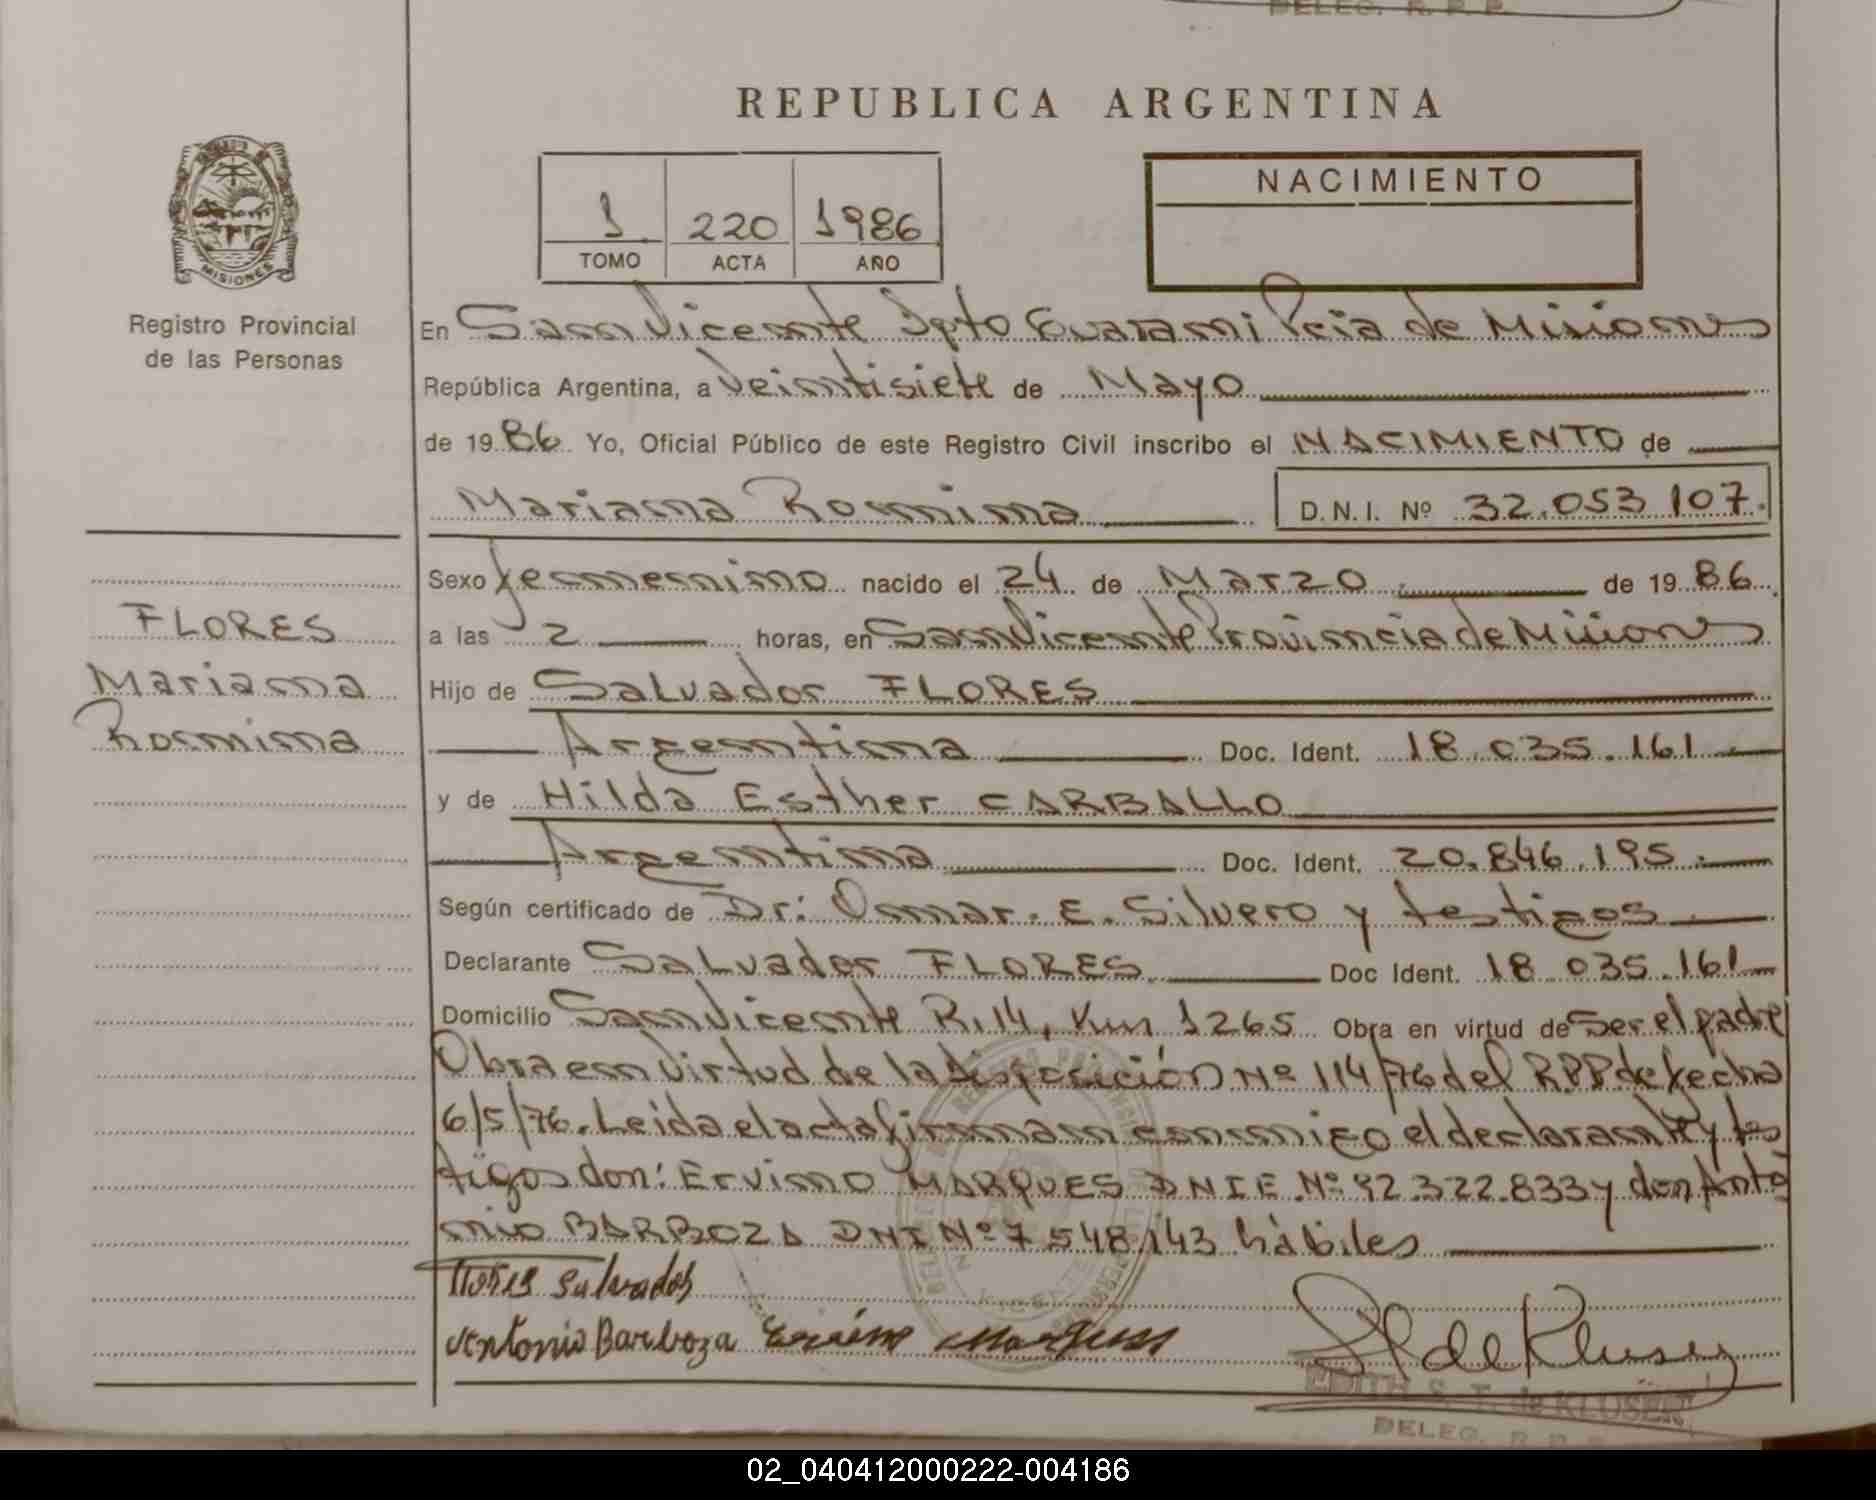 DELEG. R. P. P.
REPUBLICA ARGENTINA
MISIONES
Registro Provincial
de las Personas
1 220 1986
TOMO ACTA AÑO
NACIMIENTO
En San Vicente Dpto Guarani Pcia de Misiones
República Argentina, a Veintisiete de Mayo
de 1986 Yo, Oficial Público de este Registro Civil inscribo el NACIMIENTO de
Mariana Romina D.N.I. Nº 32.053 107.
FLORES
Mariana
Romina
Sexo femenino nacido el 24 de Marzo de 1986
a las 2 horas, en San Vicente Provincia de Misiones
Hijo de Salvador FLORES
Argentina Doc. Ident. 18.035.161
y de Hilda Esther CARBALLO
Argentina Doc. Ident. 20.846.195
Según certificado de Dr: Osmar. E. Silvero y testigos
Declarante Salvador FLORES Doc Ident. 18 035.161
Domicilio San Vicente R.14, Km 1265 Obra en virtud de Ser el padre
Obra en Virtud de la disposición Nº 114/76 del RPP de fecha
6/5/76. Leida el acta firman conmigo el declarante y tes
tigos don: Ervino MARQUES DNIE Nº 92.322.833 y don Anto
nio BARBOZA DNI Nº 7 548.143 hábiles
Flores Salvador
Antonio Barboza Ervino Marques
EDITH S. T. de KLUSER
DELEG. R. P. P.
02_040412000222-004186